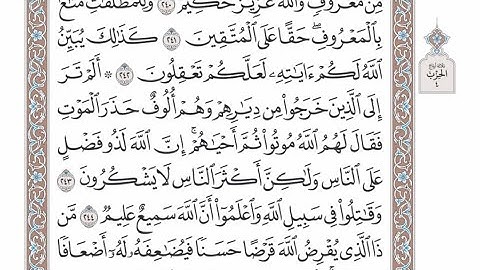 مِن مَّعْرُوفٍ وَاللَّهُ عَزِيزٌ حَكِيمٌ ٢٤٠ وَلِلْمُطَلَّقَٰتِ مَتَٰعٌ
بِالْمَعْرُوفِ حَقًّا عَلَى الْمُتَّقِينَ ٢٤١ كَذَٰلِكَ يُبَيِّنُ
اللَّهُ لَكُمْ ءَايَٰتِهِۦ لَعَلَّكُمْ تَعْقِلُونَ ٢٤٢ ۞ أَلَمْ تَرَ
إِلَى الَّذِينَ خَرَجُوا۟ مِن دِيَٰرِهِمْ وَهُمْ أُلُوفٌ حَذَرَ الْمَوْتِ
فَقَالَ لَهُمُ اللَّهُ مُوتُوا۟ ثُمَّ أَحْيَٰهُمْ ۚ إِنَّ اللَّهَ لَذُو فَضْلٍ
عَلَى النَّاسِ وَلَٰكِنَّ أَكْثَرَ النَّاسِ لَا يَشْكُرُونَ ٢٤٣
وَقَٰتِلُوا۟ فِى سَبِيلِ اللَّهِ وَاعْلَمُوٓا۟ أَنَّ اللَّهَ سَمِيعٌ عَلِيمٌ ٢٤٤ مَّن
ذَا الَّذِى يُقْرِضُ اللَّهَ قَرْضًا حَسَنًا فَيُضَٰعِفَهُۥ لَهُۥٓ أَضْعَافًا
الحزب
٤